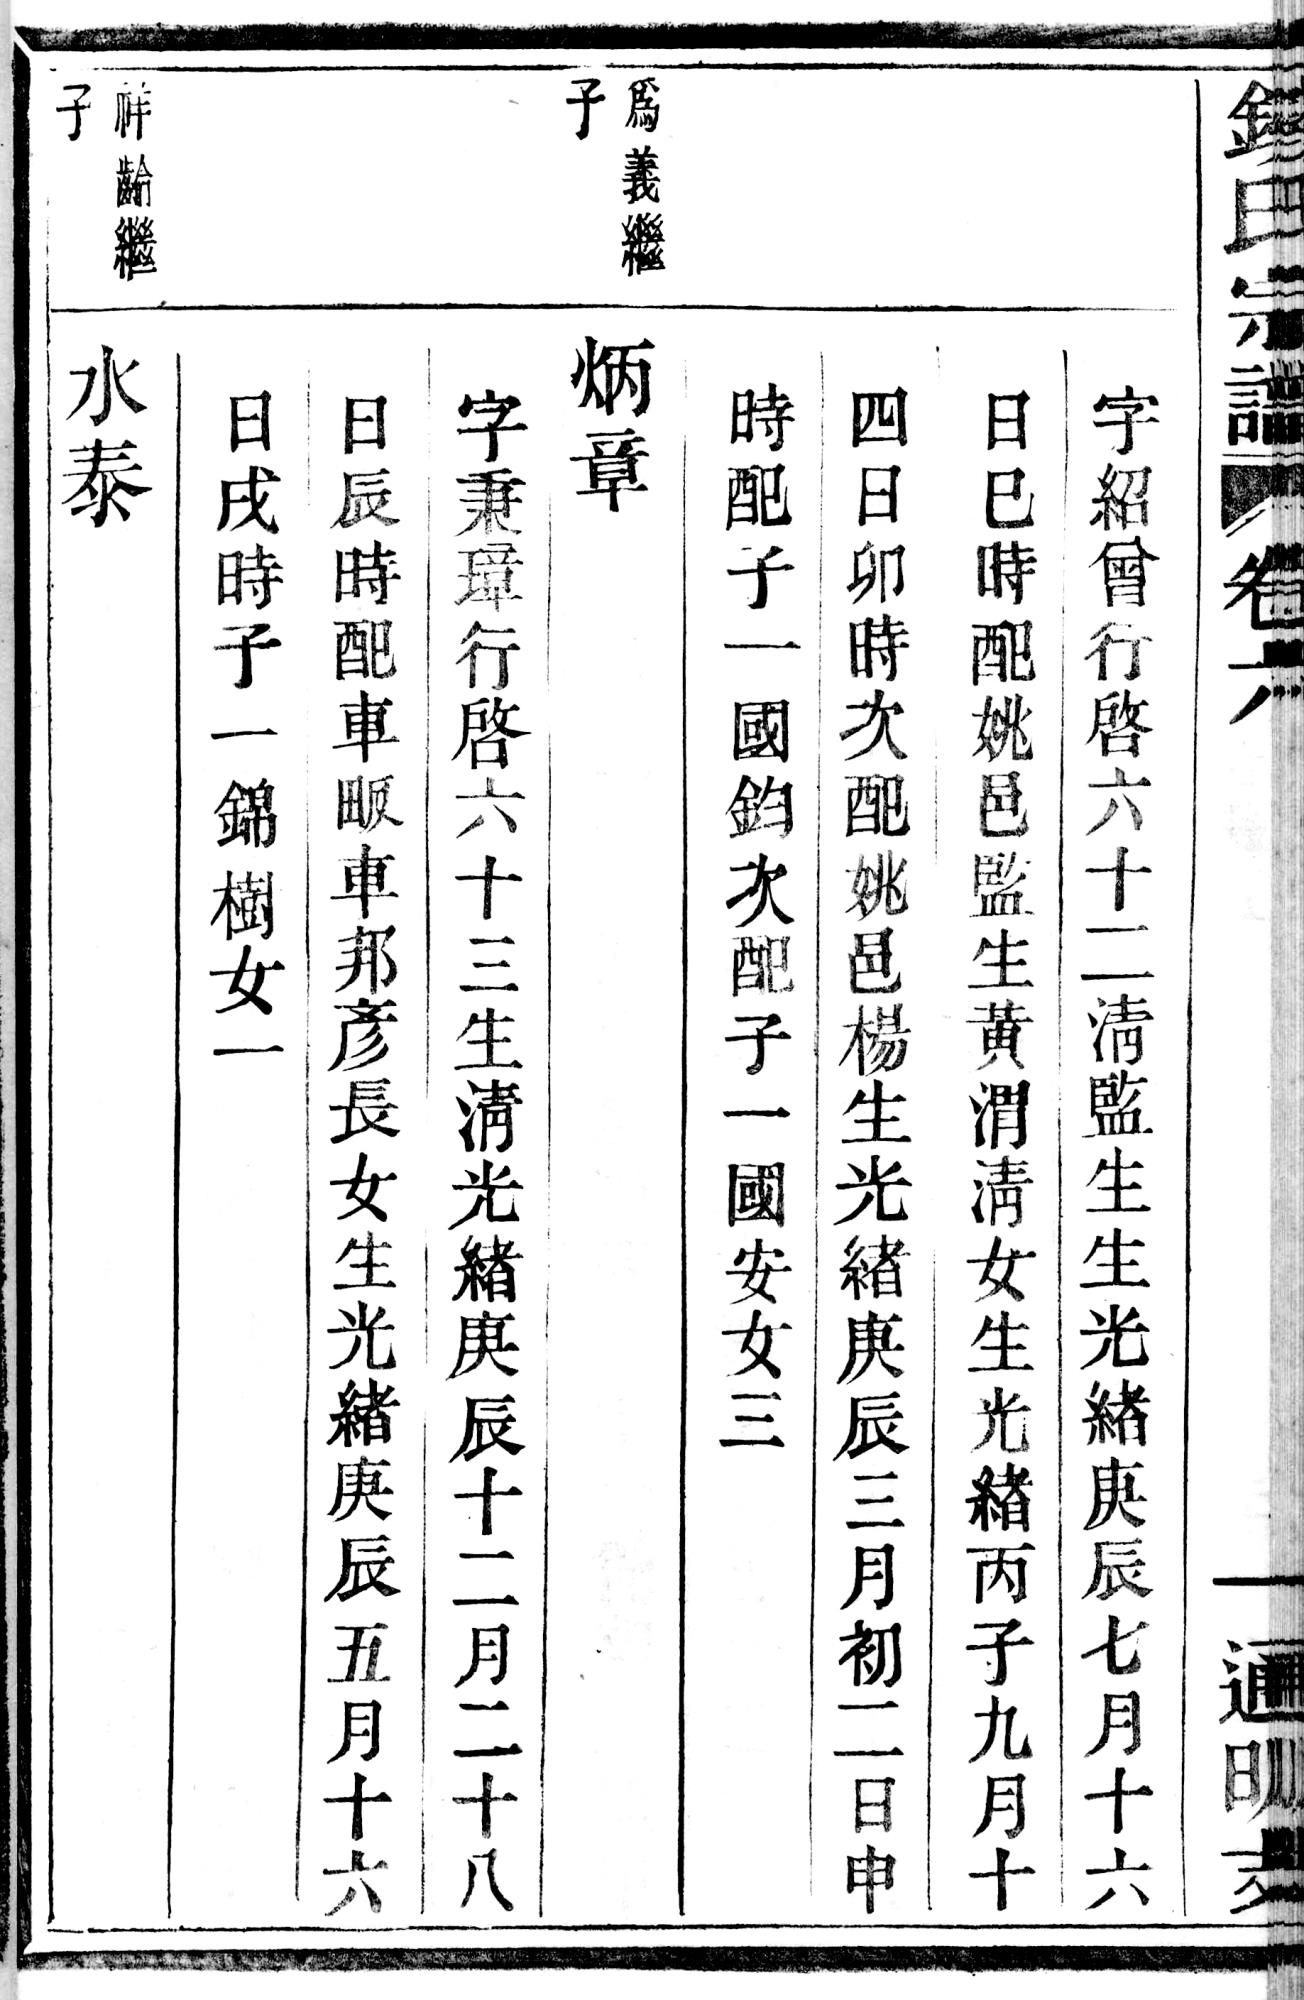 錢氏宗譜 卷六 一 通明支
字紹曾行啓六十二淸監生生光緖庚辰七月十六
日巳時配姚邑監生黃渭淸女生光緖丙子九月十
四日卯時次配姚邑楊生光緖庚辰三月初二日申
時配子一國鈞次配子一國安女三
爲義繼
子
炳章
字秉璋行啓六十三生淸光緖庚辰十二月二十八
日辰時配車畈車邦彥長女生光緖庚辰五月十六
日戌時子一錦樹女一
祥齡繼
子
水泰